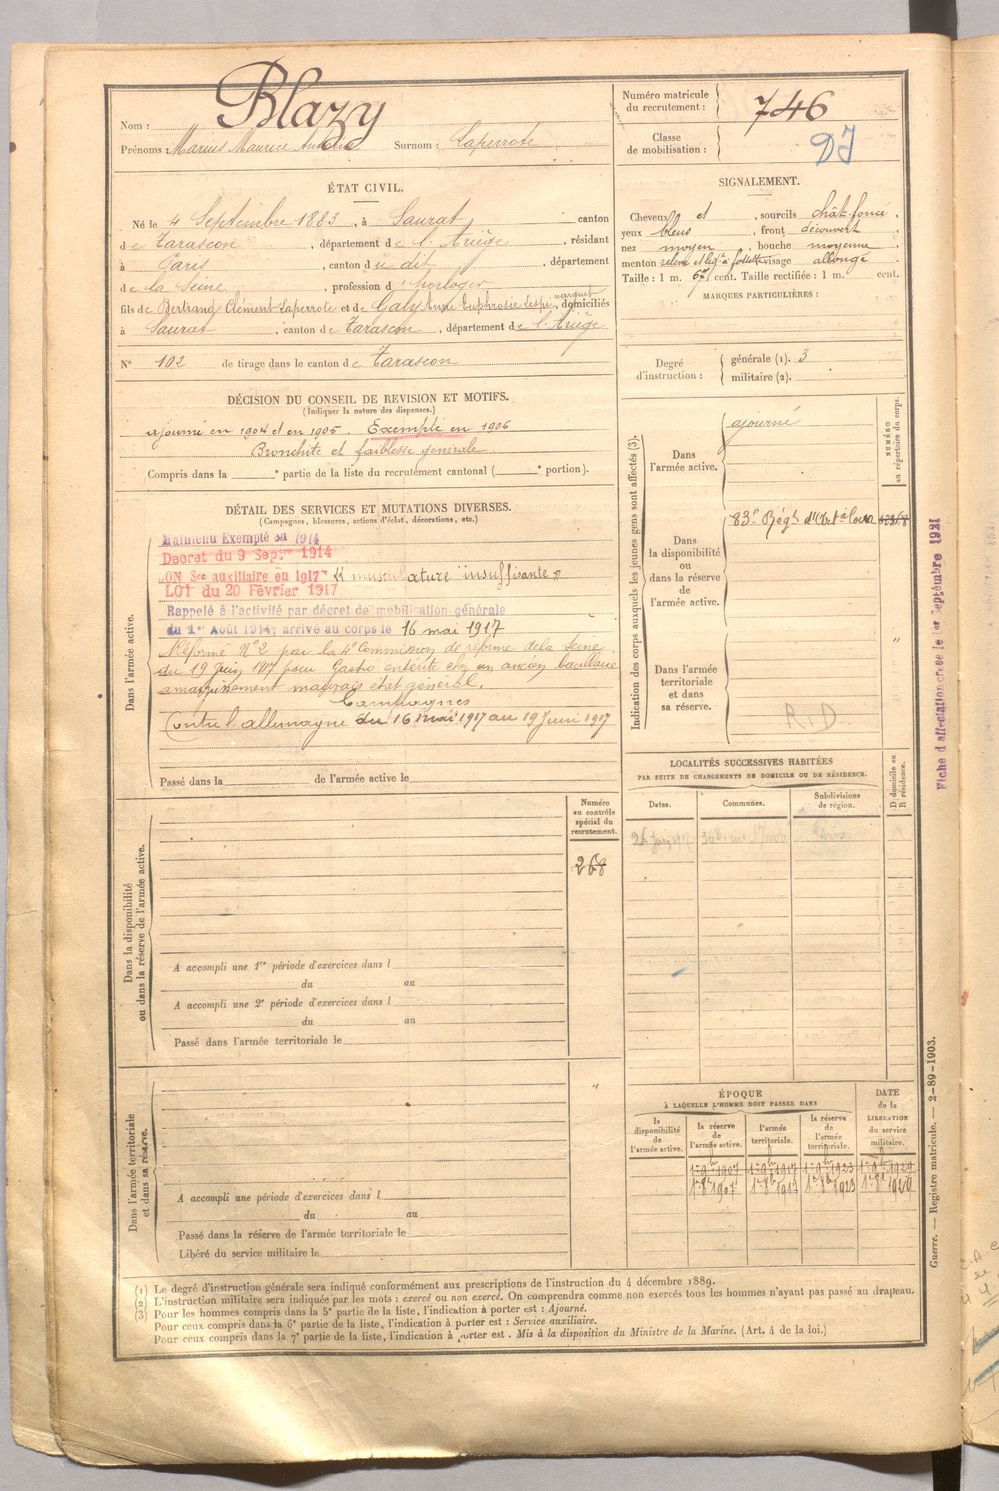 Nom : Blazy
Prénoms : Marius Maurice Surnom : Laperrote
Numéro matricule du recrutement : 746
Classe de mobilisation : DI
ÉTAT CIVIL.
Né le 4 Septembre 1883, à Saurat canton
de Tarascon, département de l'Ariège, résidant
à Paris, canton du dit, département
de la Seine, profession d'horloger
fils de Bertrand Clément Laperrote et de Galy Anne Euphrosie domiciliés
à Saurat, canton de Tarascon, département de l'Ariège
N° 102 de tirage dans le canton de Tarascon
SIGNALEMENT.
Cheveux et, sourcils chât. foncé,
yeux bleus, front découvert
nez moyen, bouche moyenne
menton visage allongé
Taille : 1 m. 67 cent. Taille rectifiée : 1 m. cent.
MARQUES PARTICULIÈRES :
Degré d'instruction : générale (1). 3
militaire (2).
DÉCISION DU CONSEIL DE REVISION ET MOTIFS.
(Indiquer la nature des dispenses.)
ajourné en 1904 et en 1905. Exempté en 1906
Bronchite et faiblesse générale
Compris dans la e partie de la liste du recrutement cantonal ( e portion).
DÉTAIL DES SERVICES ET MUTATIONS DIVERSES.
(Campagnes, blessures, actions d'éclat, décorations, etc.)
Dans l'armée active.
Maintenu Exempté en 1914
Decret du 9 Septre 1914
BON Sce auxiliaire en 1917 musculature insuffisante
LOI du 20 Février 1917
Rappelé à l'activité par décret de mobilisation générale
du 1er Août 1914; arrivé au corps le 16 mai 1917
Réformé N°2 par la 4e Commission de réforme de la Seine
du 19 Juin 1917 pour Gastro entérite chez un ancien bacillaire
amaigrissement mauvais état général.
Campagnes
Contre l'allemagne du 16 mai 1917 au 19 Juin 1917
Passé dans la de l'armée active le
Indication des corps auxquels les jeunes gens sont affectés (3).
NUMÉRO au répertoire du corps.
Dans l'armée active.
ajourné
Dans la disponibilité ou dans la réserve de l'armée active.
83e Régt d'Art ie lourde
Dans l'armée territoriale et dans sa réserve.
"
R.D
Fiche d'affectation créée le 1er Septembre 1921
LOCALITÉS SUCCESSIVES HABITÉES
PAR SUITE DE CHANGEMENTS DE DOMICILE OU DE RÉSIDENCE.
Dates. Communes. Subdivisions de région. D. domicile ou R. résidence.
Numéro au contrôle spécial du recrutement.
268
Dans la disponibilité ou dans la réserve de l'armée active.
A accompli une 1re période d'exercices dans l
du au
A accompli une 2e période d'exercices dans l
du au
Passé dans l'armée territoriale le
Dans l'armée territoriale et dans sa réserve.
"
A accompli une période d'exercices dans l
du au
Passé dans la réserve de l'armée territoriale le
Libéré du service militaire le
ÉPOQUE
À LAQUELLE L'HOMME DOIT PASSER DANS
la disponibilité de l'armée active. la réserve de l'armée active. l'armée territoriale. la réserve de l'armée territoriale. DATE de la LIBÉRATION du service militaire.
(1) Le degré d'instruction générale sera indiqué conformément aux prescriptions de l'instruction du 4 décembre 1889.
(2) L'instruction militaire sera indiquée par les mots : exercé ou non exercé. On comprendra comme non exercés tous les hommes n'ayant pas passé au drapeau.
(3) Pour les hommes compris dans la 5e partie de la liste, l'indication à porter est : Ajourné.
Pour ceux compris dans la 6e partie de la liste, l'indication à porter est : Service auxiliaire.
Pour ceux compris dans la 7e partie de la liste, l'indication à porter est . Mis à la disposition du Ministre de la Marine. (Art. 4 de la loi.)
Guerre. — Registre matricule. — 2-89-1903.